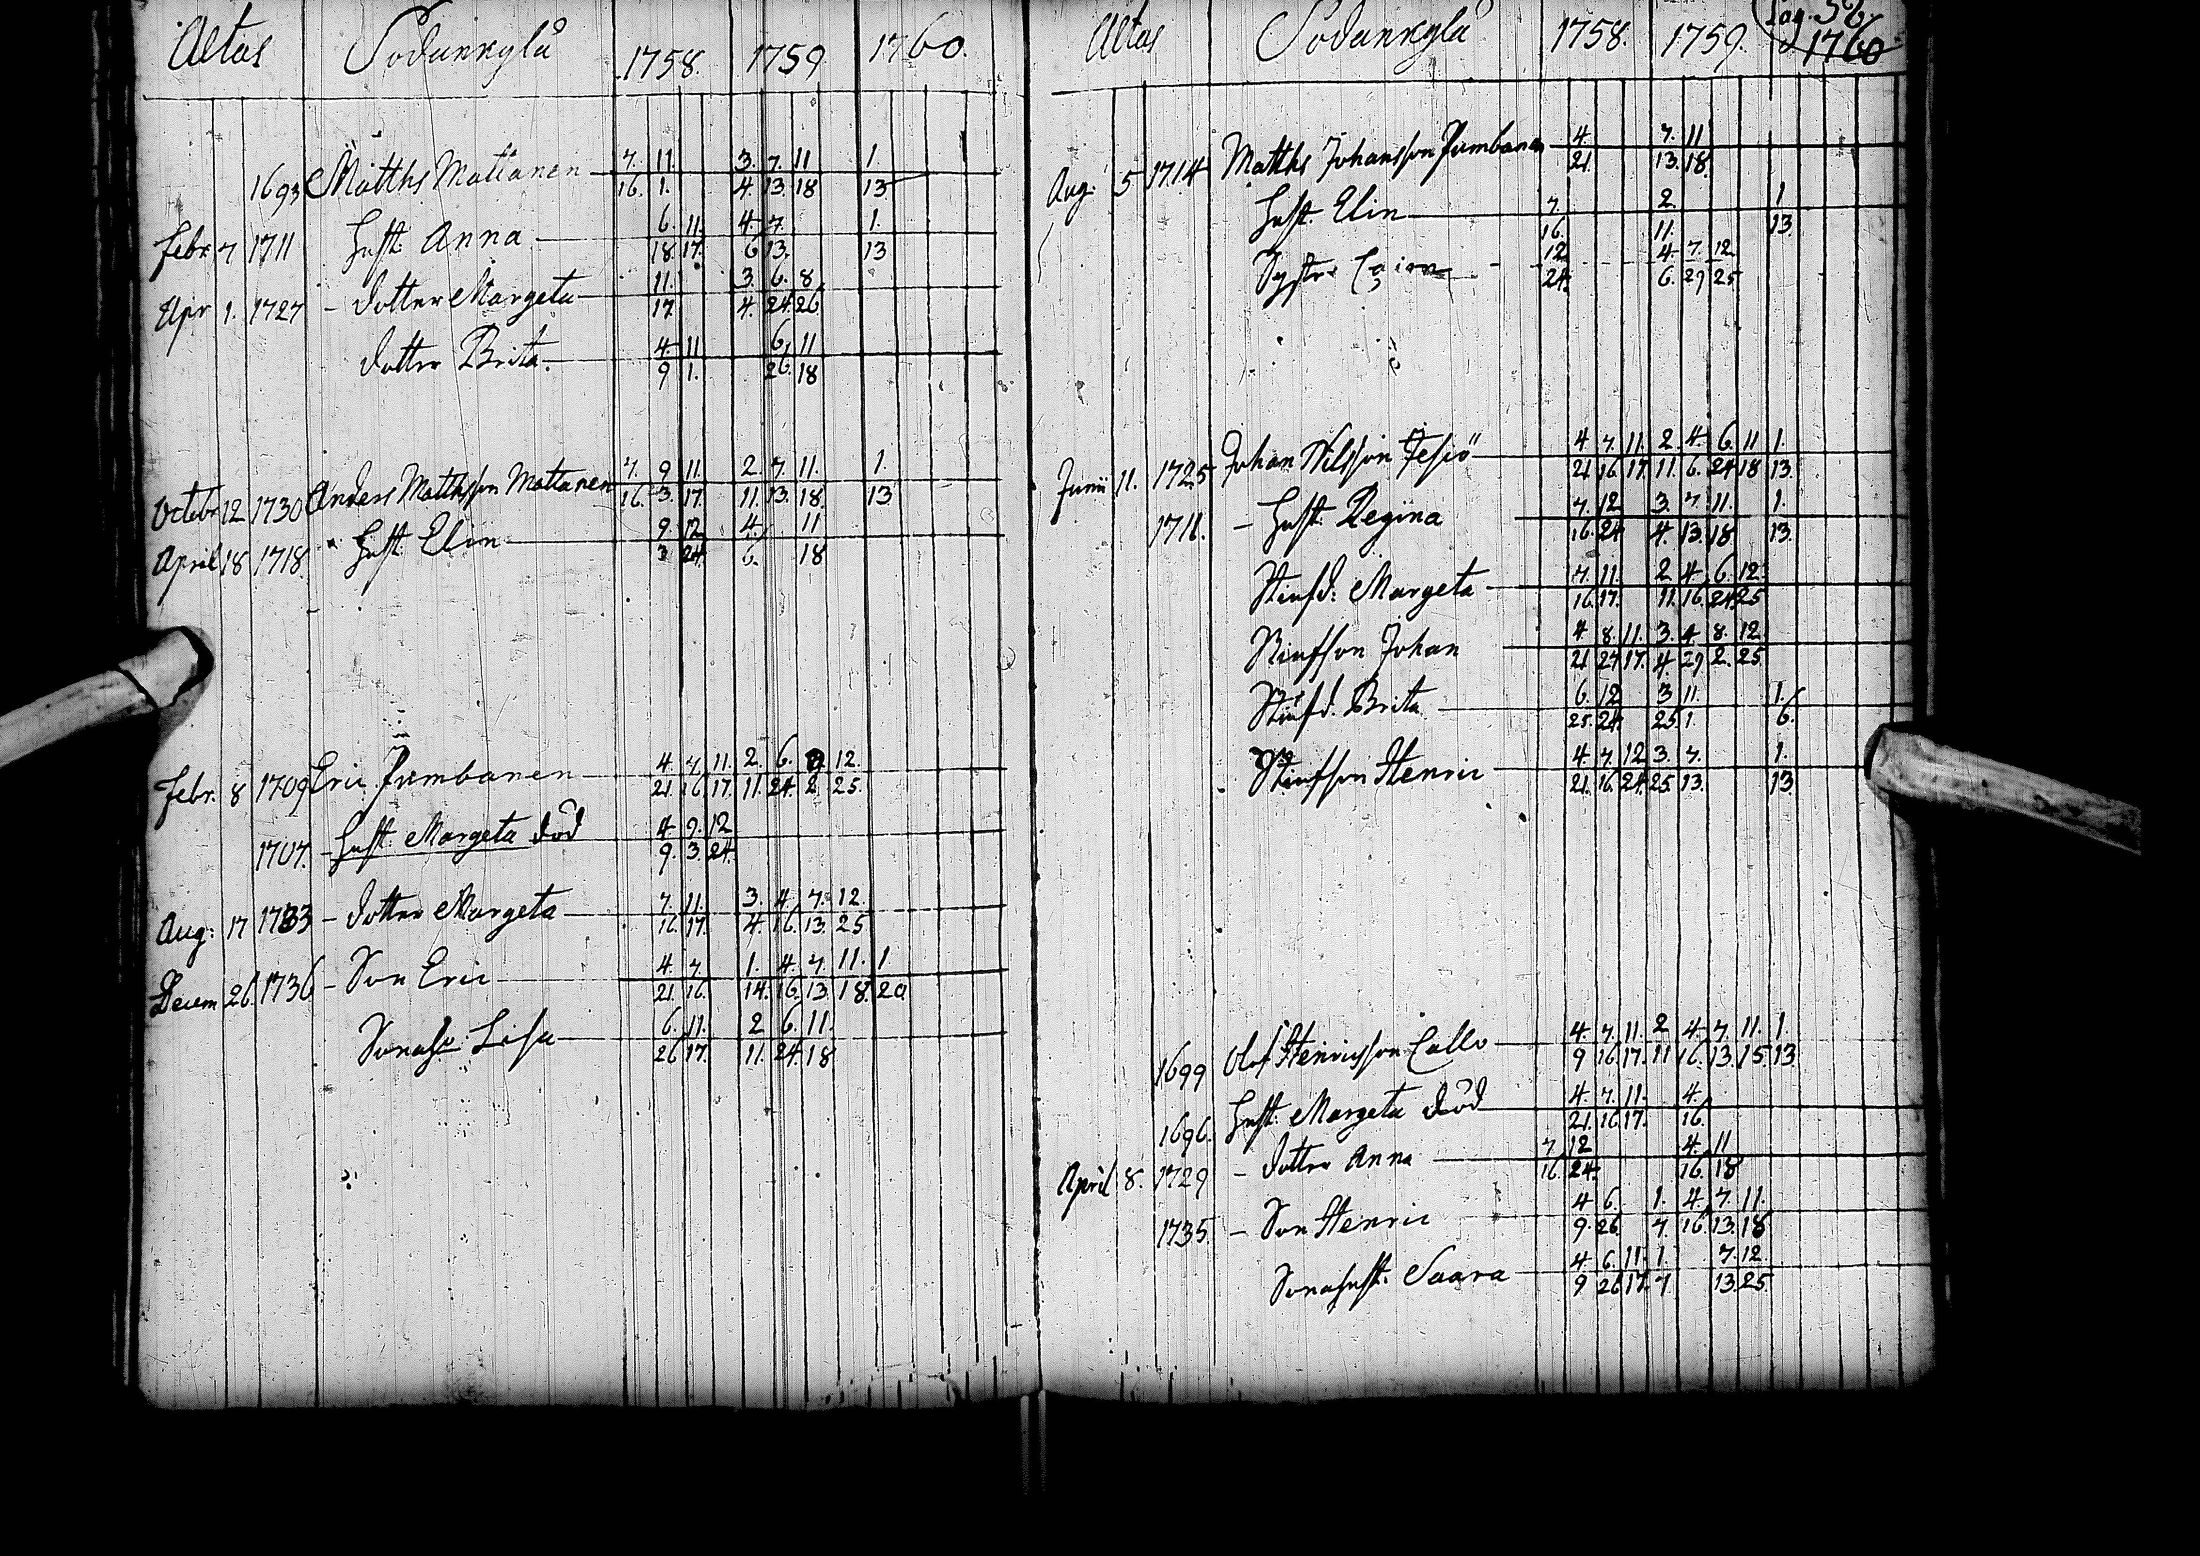 Altas Sodankylå 1758. 1759 1760.
7. 11. 3. 7. 11 1
1693 Matths Mattanen
16. 1. 4. 13 18 13
6. 11. 4. 7. 1.
Febr. 7 1711 Hust. Anna
18. 17. 6 13. 13
11. 3. 6. 8
Apr 1. 1727 - dotter Margeta
17. 4. 24. 26
4. 11 6. 11
dotter Brita.
9 1. 26. 18
7. 9 11. 2. 7. 11. 1.
Octobr 12 1730 Anders Matthsson Mattanen
16. 3. 17. 11. 13. 18. 13
9. 12. 4. 11
April 18 1718. Hust. Elin
3 24. 6. 18
4. 7 11. 2. 6. 12.
Febr. 8 1709 Eric Pumbanen
21. 16. 17. 11. 24. 2 25.
4 9. 12
1707. - Hust. Margeta död
9. 3. 24.
7. 11. 3. 4. 7. 12.
Aug: 17 1733 - dotter Margeta
16. 17. 4. 16. 13. 25
4. 7. 1. 4. 7. 11. 1
Decem 26. 1736 - Son Eric
21. 16. 14. 16. 13. 18. 20
6. 11. 2 6. 11.
Sonah: Lisa
26 17. 11. 24. 18
Pag. 56
Altas Sodankylå 1758. 1759. 1760
4. 7. 11
Aug: 5 1714 Matths Johansson Pumbanen
21 13. 18.
7. 2. 1
Hust. Elin
16. 11. 13.
12 4. 7. 12
Syster
24. 6. 29 25
4 7. 11. 2. 4. 6. 11 1.
Junii 11. 1725 Johan Nilsson Jesiö
21. 16. 17. 11. 6. 24 18 13.
7. 12 3. 7. 11. 1.
1711. - Hust. Regina
16. 24 4. 13. 18 13.
7. 11. 2 4. 6. 12
Stiufd: Margeta
16. 17. 11. 16. 24. 25
4 8. 11. 3. 4. 8. 12.
Stiufson Johan
21 27 17. 4 29 2. 25.
6. 12 3 11. 1.
Stiufd. Brita
25. 24. 25. 1. 6.
4 7. 12 3. 7. 1.
Stiufson Henric
21. 16. 24. 25. 13. 13.
4. 7. 11. 2 4. 7. 11. 1.
1699 Olof Henricsson Callo
9 16. 17. 11 16. 13. 15. 13
4. 7. 11. 4.
1696. Hust. Margeta död
21. 16. 17. 16.
7. 12 4. 11
April 8. 1729 - dotter Anna
16. 24. 16. 18
4 6. 1. 4. 7. 11.
1735. - Son Henric
9. 26. 7. 16. 13. 18
4 6. 11. 1. 7. 12.
Sonahust: Saara
9 26 17. 7. 13. 25